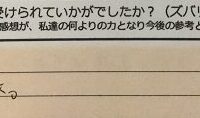 受けられていかがでしたか？（ズバリ
感想が、私達の何よりの力となり今後の参考と
。